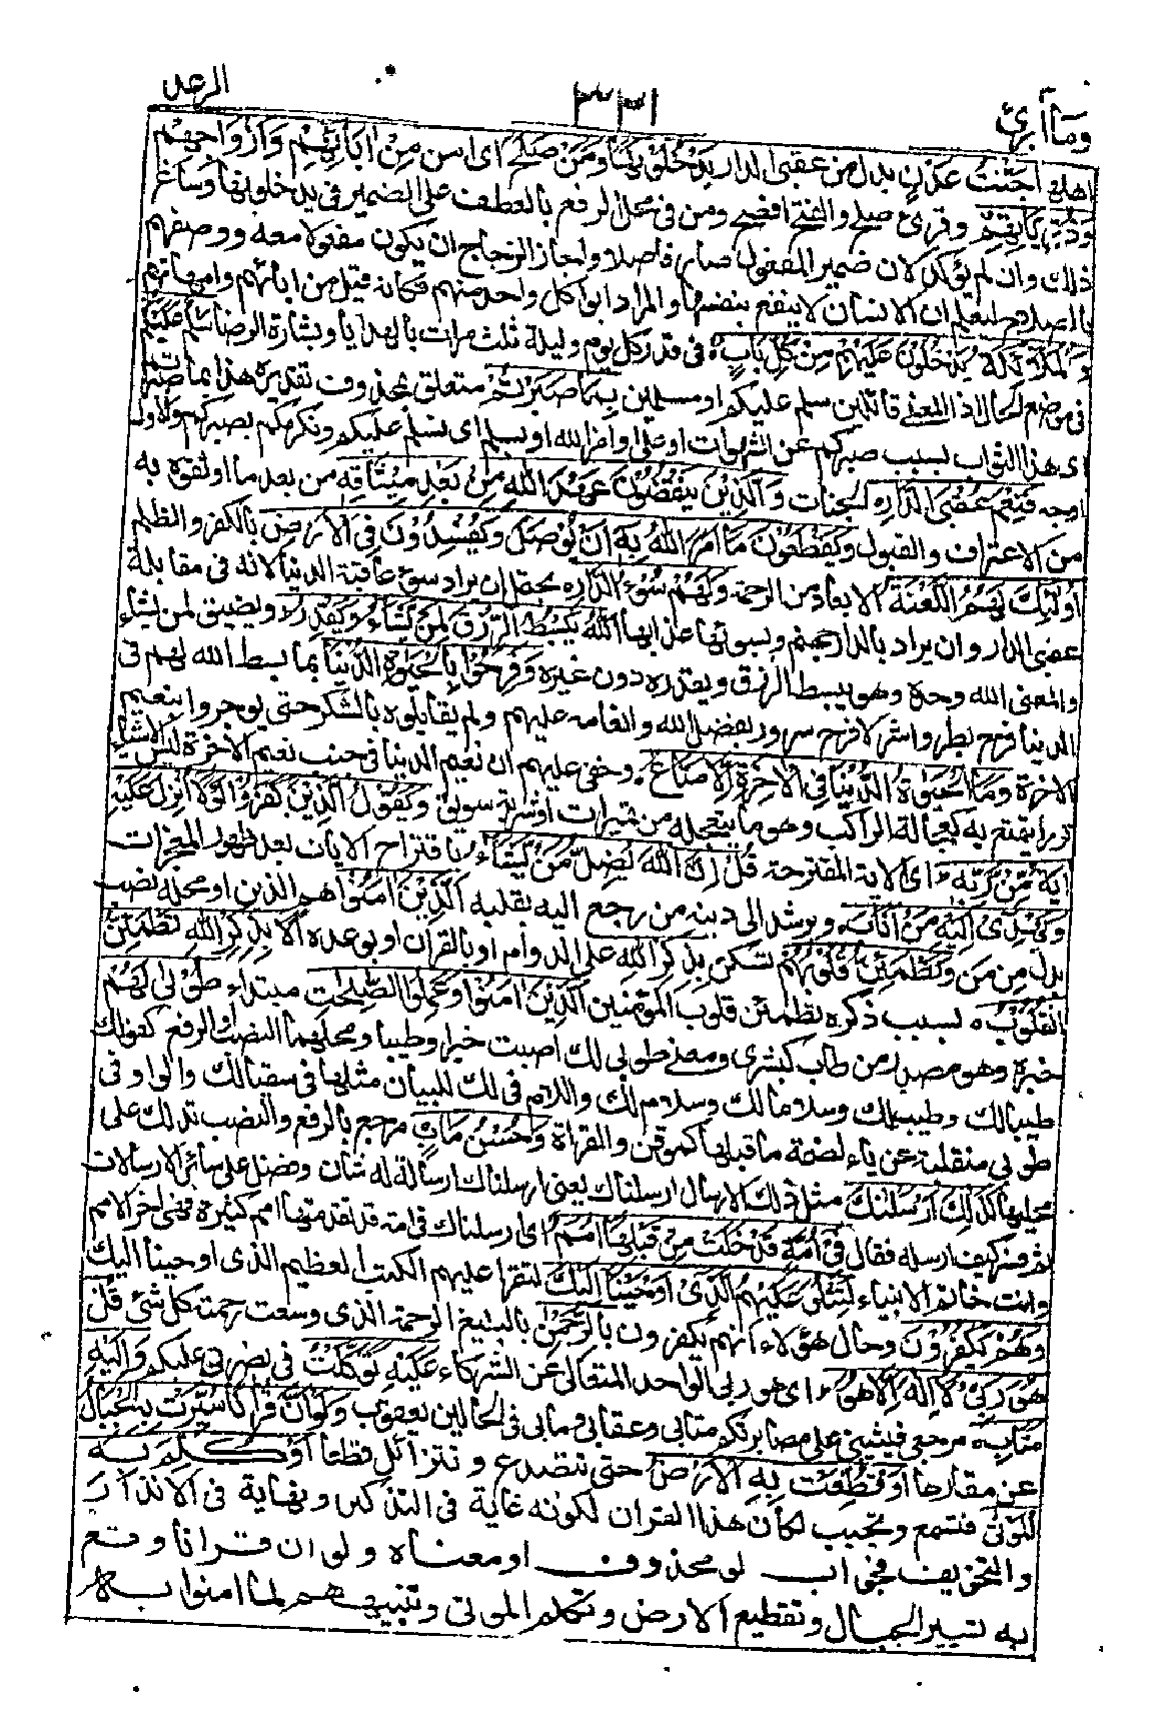 وما أبرئ
٣٣١
الرعد
اهلها جَنّٰتُ عَدْنٍ بدل من عقبى الدار يَدْخُلُوْنَهَا وَمَنْ صَلَحَ اى امن مِنْ اٰبَآئِهِمْ وَاَزْوَاجِهِمْ
وَذُرِّيّٰتِهِمْ وقرئ صلح والفتح افصح ومن فى محل الرفع بالعطف على الضمير فى يدخلونها وساغ
ذلك وان لم يؤكد لان ضمير المفعول صار فاصلا واجاز الزجاج ان يكون مفعولا معه ووصفهم
بالصلاح ليعلم ان الانسان لا ينفع بنفسها والمراد ابوا كل واحد منهم فكانه قيل من اٰبائهم وامهاتهم
وَالْمَلٰٓئِكَةُ يَدْخُلُوْنَ عَلَيْهِمْ مِنْ كُلِّ بَابٍ فى قدر كل يوم وليلة ثلث مرات بالهدايا وبشارة الرضا سَلٰمٌ عَلَيْكُمْ
فى موضع الحال اذ المعنى قائلين سلم عليكم او مسلمين بِمَا صَبَرْتُمْ متعلق بمحذوف تقديره هذا بما صبرتم
اى هذا الثواب بسبب صبركم عن الشهوات او على اوامر الله او بسلم اى نسلم عليكم ونكرمكم بصبركم والاول
اوجه فَنِعْمَ عُقْبَى الدَّارِ الجنات وَالَّذِيْنَ يَنْقُضُوْنَ عَهْدَ اللهِ مِنْ بَعْدِ مِيْثَاقِهِ من بعد ما اوثقوه به
من الاعتراف والقبول وَيَقْطَعُوْنَ مَا اَمَرَ اللهُ بِهٖ اَنْ يُوْصَلَ وَيُفْسِدُوْنَ فِى الْاَرْضِ بالكفر والظلم
اُولٰٓئِكَ لَهُمُ اللَّعْنَةُ الابعاد من الرحمة وَلَهُمْ سُوْٓءُ الدَّارِ يحتمل ان يراد سوء عاقبة الدنيا لانه فى مقابلة
عقبى الدار وان يراد بالدار جهنم وبسوئها عذابها اَللهُ يَبْسُطُ الرِّزْقَ لِمَنْ يَشَآءُ وَيَقْدِرُ ويضيق لمن يشاء
والمعنى الله وحده وهو يبسط الرزق ويقدره دون غيره وَفَرِحُوْا بِالْحَيٰوةِ الدُّنْيَا بما بسط الله لهم فى
الدنيا فرح بطر واشر لا فرح سرور بفضل الله وانعامه عليهم ولم يقابلوه بالشكر حتى يوجروا بنعيم
الاخرة وَمَا الْحَيٰوةُ الدُّنْيَا فِى الْاٰخِرَةِ اِلَّا مَتَاعٌ وخفى عليهم ان نعيم الدنيا فى جنب نعيم الاٰخرة ليس الا شيئا
نزرا يتمتع به كعجالة الراكب وهو ما يتعجله من تميرات او شربة سويق وَيَقُوْلُ الَّذِيْنَ كَفَرُوْا لَوْلَا اُنْزِلَ عَلَيْهِ
اٰيَةٌ مِّنْ رَّبِّهٖ اى الاية المقترحة قُلْ اِنَّ اللهَ يُضِلُّ مَنْ يَّشَآءُ باقتراح الاٰيات بعد ظهور المعجزات
وَيَهْدِىْٓ اِلَيْهِ مَنْ اَنَابَ ويرشد الى دينه من رجع اليه بقلبه اَلَّذِيْنَ اٰمَنُوْا هم الذين او محله نصب
بدل من من وَتَطْمَئِنُّ قُلُوْبُهُمْ تسكن بِذِكْرِ اللهِ على الدوام او بالقراٰن او بوعده اَلَا بِذِكْرِ اللهِ تَطْمَئِنُّ
الْقُلُوْبُ بسبب ذكره تطمئن قلوب المؤمنين اَلَّذِيْنَ اٰمَنُوْا وَعَمِلُوا الصّٰلِحٰتِ مبتداء طُوْبٰى لَهُمْ
خبره وهو مصدر من طاب كبشرى ومعنى طوبى لك اصبت خيرا وطيبا ومحلهما النصب او الرفع كقولك
طيبا لك وطيب لك وسلاما لك وسلام لك واللام فى لك للبيان مثلها فى سقيا لك والواو فى
طوبى منقلبة عن ياء لضمة ما قبلها كموقن والقراة وَحُسْنُ مَاٰبٍ مرجع بالرفع والنصب تدلك على
محليهما كَذٰلِكَ اَرْسَلْنٰكَ مثل ذلك الارسال ارسلناك يعنى ارسلناك ارسالة له شان وفضل على سائر الارسالات
ثم فسر كيف ارسله فقال فِىْٓ اُمَّةٍ قَدْ خَلَتْ مِنْ قَبْلِهَآ اُمَمٌ اى ارسلناك فى امة قد تقدمتها امم كثيرة فهى اٰخر الامم
وانت خاتم الانبياء لِتَتْلُوَا عَلَيْهِمُ الَّذِىْٓ اَوْحَيْنَآ اِلَيْكَ لتقرا عليهم الكتب العظيم الذى اوحينا اليك
وَهُمْ يَكْفُرُوْنَ وحال هؤلاء انهم يكفرون بِالرَّحْمٰنِ بالبليغ الرحمة الذى وسعت رحمته كل شئ قُلْ
هُوَ رَبِّىْ لَآ اِلٰهَ اِلَّا هُوَ اى هو ربى الواحد المتعالى عن الشركاء عَلَيْهِ تَوَكَّلْتُ فى نصرتى عليكم وَاِلَيْهِ
مَتَابِ مرجعى فيثيبنى على مصابرتكم متابى وعقابى ومابى فى الحالين يعقوب وَلَوْ اَنَّ قُرْاٰنًا سُيِّرَتْ بِهِ الْجِبَالُ
عن مقارها اَوْ قُطِّعَتْ بِهِ الْاَرْضُ حتى تتصدع وتتزائل قطعا اَوْ كُلِّمَ بِهِ
الْمَوْتٰى فتسمع وتجيب لكان هذا القران لكونه غاية فى التذكير ونهاية فى الانذار
والتخويف فجواب لو محذوف او معناه ولو ان قراٰنا وقع
به تسيير الجبال وتقطيع الارض وتكلم الموتى وتنبيههم لما امنوا به